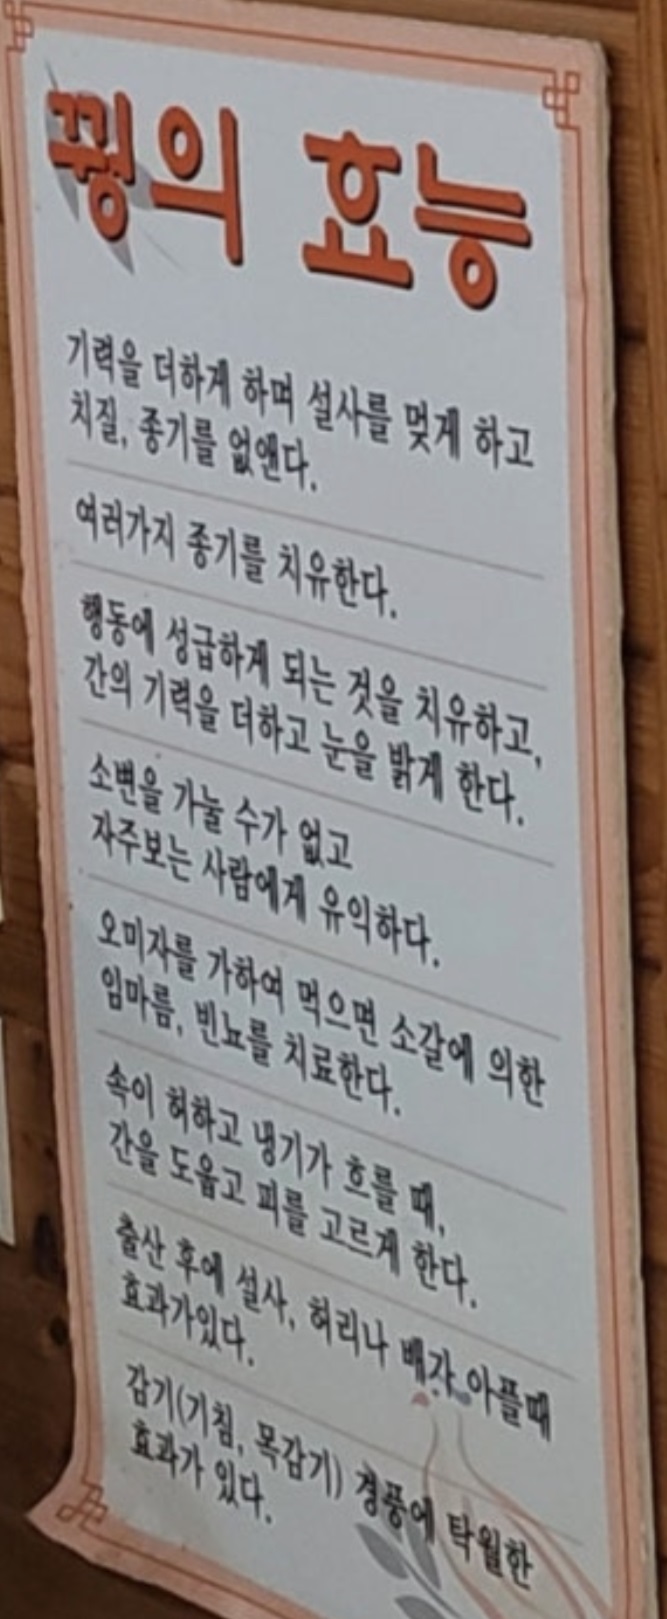 꿩의 효능
기력을 더하게 하며 설사를 멎게 하고
치질, 종기를 없앤다.
여러가지 종기를 치유한다.
행동에 성급하게 되는 것을 치유하고,
간의 기력을 더하고 눈을 밝게 한다.
소변을 가눌 수가 없고
자주보는 사람에게 유익하다.
오미자를 가하여 먹으면 소갈에 의한
입마름, 빈뇨를 치료한다.
속이 허하고 냉기가 흐를 때,
간을 도웁고 피를 고르게 한다.
출산 후에 설사, 허리나 배가 아플때
효과가있다.
감기(기침, 목감기) 경풍에 탁월한
효과가 있다.